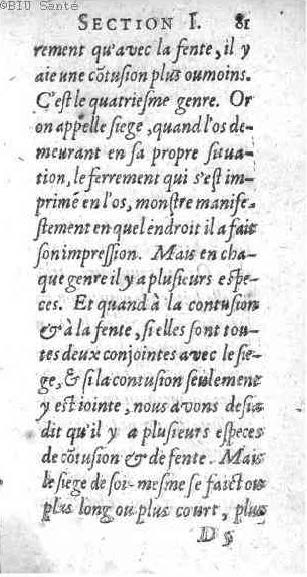 ©BIU Santé
SECTION I. 81
rement qu'avec la fente, il y
aie une cõtusion plus ou moins.
C'est le quatriesme genre. Or
on appelle siege, quand l'os de-
meurant en sa propre situa-
tion, le ferrement qui s'est im-
primé en l'os, monstre manife-
stement en quel endroit il a fait
son impression. Mais en cha-
que genre il y a plusieurs espe-
ces. Et quand à la contusion
& à la fente, si elles sont tou-
tes deux conjointes avec le sie-
ge, & si la contusion seulement
y est iointe, nous avons desia
dit qu'il y a plusieurs especes
de cõtusion & de fente. Mais
le siege de soi-mesme se faict ou
plus long ou plus court, plus
D 5